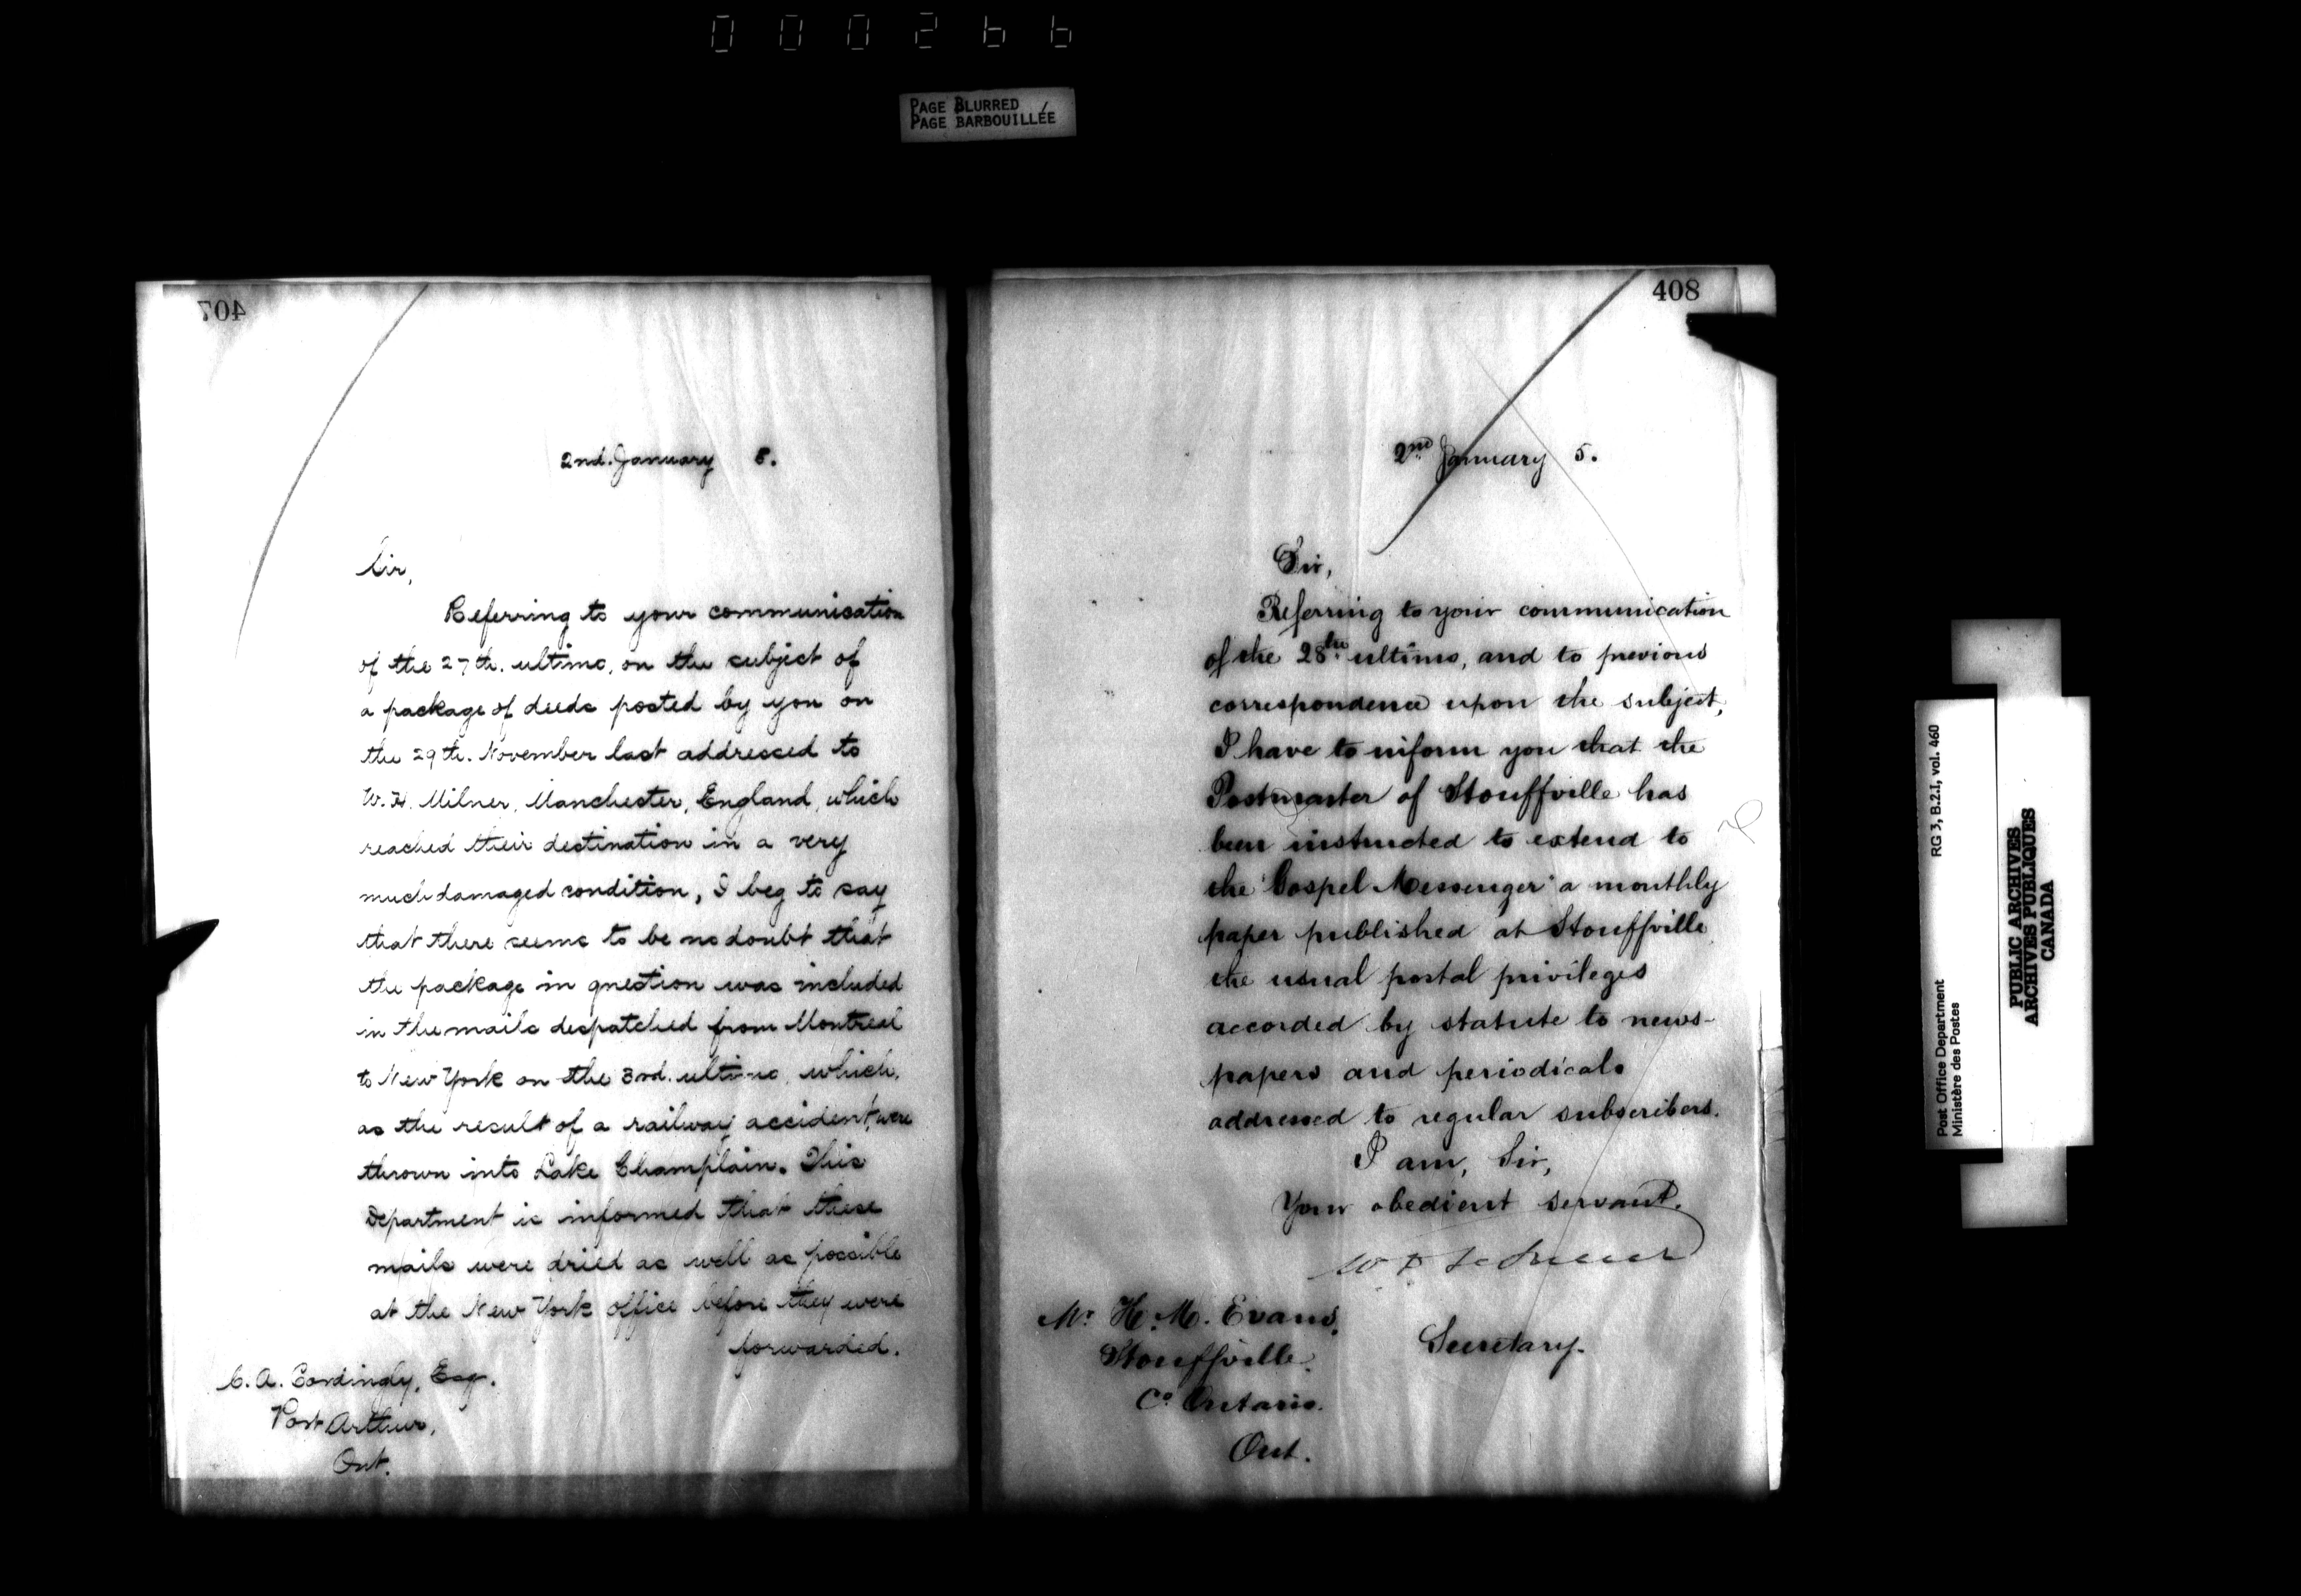 000266
PAGE BLURRED
PAGE BARBOUILLÉE
407
2nd. January 5.
Sir,
Referring to your communication
of the 27th. ultimo, on the subject of
a package of deeds posted by you on
the 29th. November last addressed to
W. H. Milner, Manchester, England, which
reached their destination in a very
much damaged condition, I beg to say
that there seems to be no doubt that
the package in question was included
in the mails despatched from Montreal
to New York on the 3rd. ultimo, which,
as the result of a railway accident, were
thrown into Lake Champlain. This
Department is informed that these
mails were dried as well as possible
at the New York office before they were
forwarded.
C. A. Cordingly, Esq.
Port Arthur,
Ont.
408
2nd January 5.
Sir,
Referring to your communication
of the 28th ultimo, and to previous
correspondence upon the subject,
I have to inform you that the
Postmaster of Stouffville has
been instructed to extend to
the "Gospel Messenger" a monthly
paper published at Stouffville
the usual postal privileges
accorded by statute to news-
papers and periodicals
addressed to regular subscribers.
I am, Sir,
Your obedient servant.
Secretary.
Mr H. M. Evans,
Stouffville.
Co Ontario.
Ont.
RG 3, B.2.I, vol. 460
Post Office Department
Ministère des Postes
PUBLIC ARCHIVES
ARCHIVES PUBLIQUES
CANADA